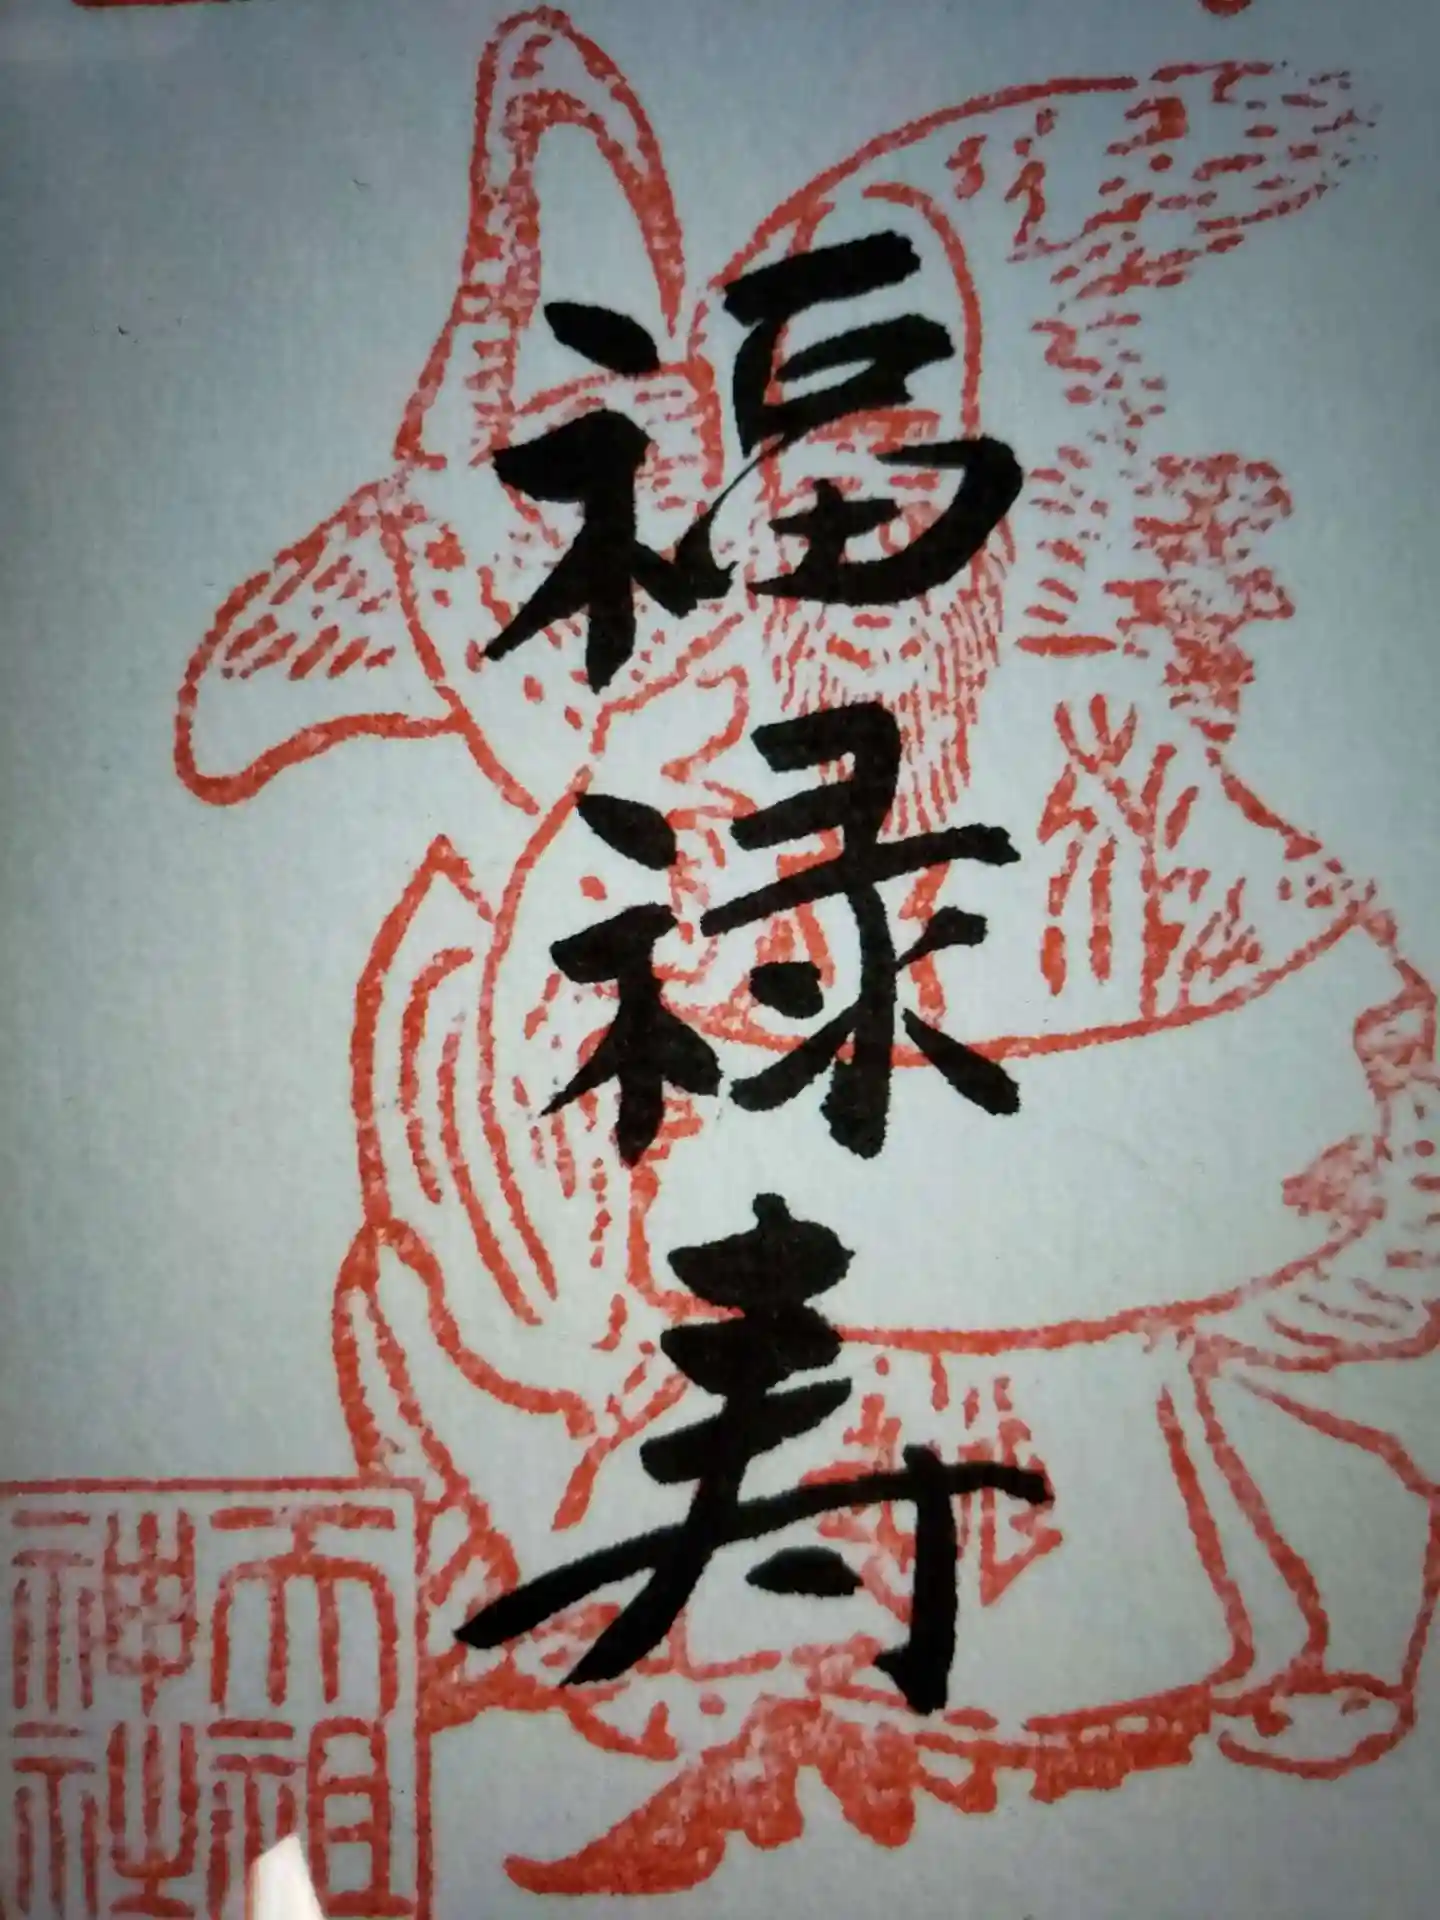 福禄寿
天祖
神社